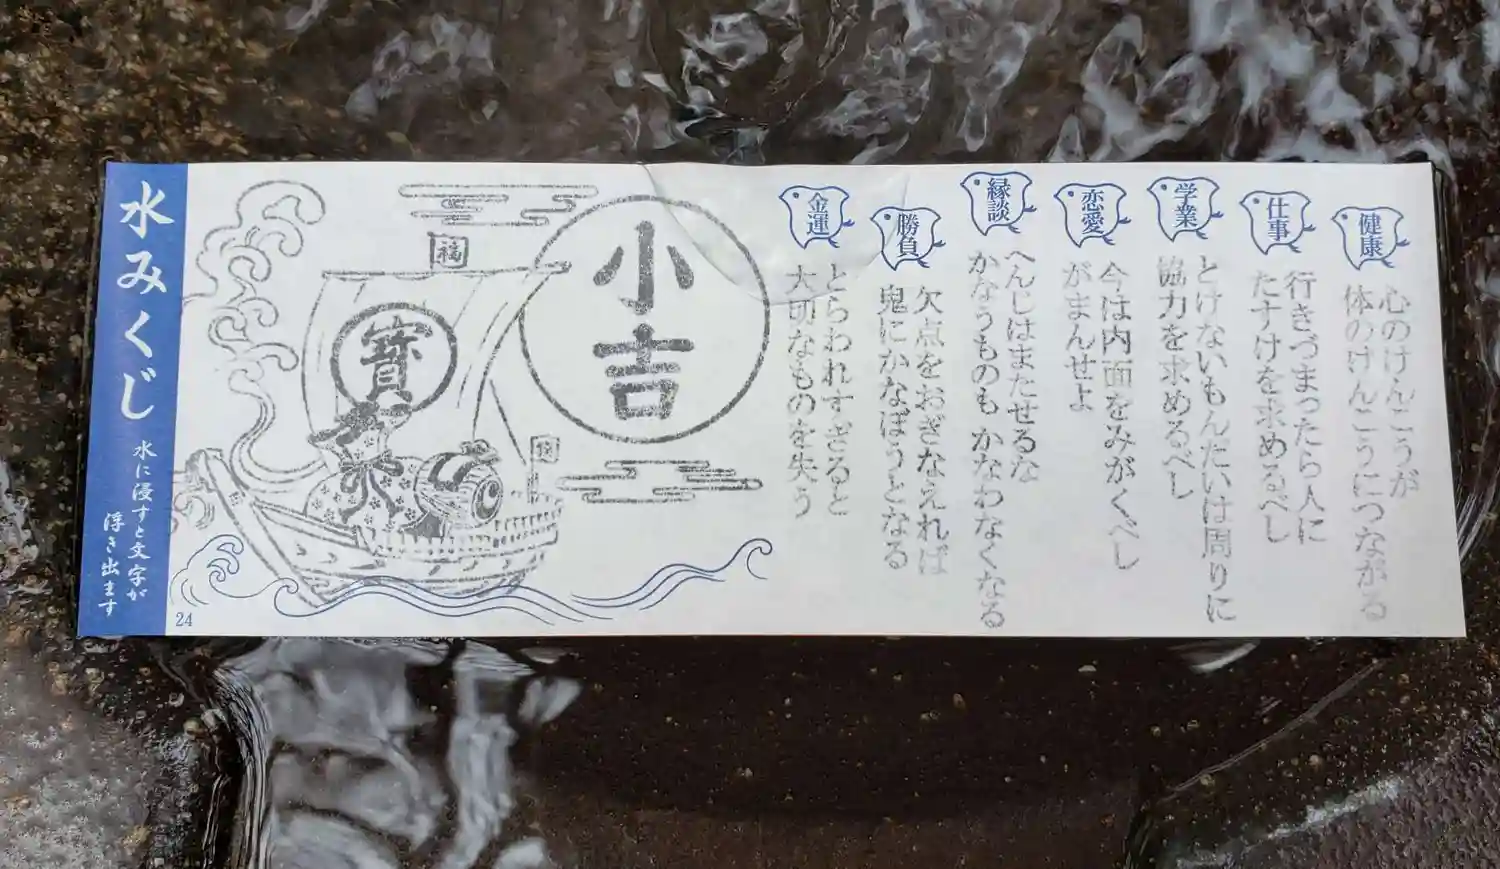 健康
心のけんこうが
体のけんこうにつながる
仕事
行きづまったら人に
たすけを求めるべし
学業
とけないもんだいは周りに
協力を求めるべし
恋愛
今は内面をみがくべし
がまんせよ
縁談
へんじはまたせるな
かなうものも かなわなくなる
勝負
欠点をおぎなえれば
鬼にかなぼうとなる
金運
とらわれすぎると
大切なものを失う
小吉
福
寳
水みくじ
水に浸すと文字が
浮き出ます
24